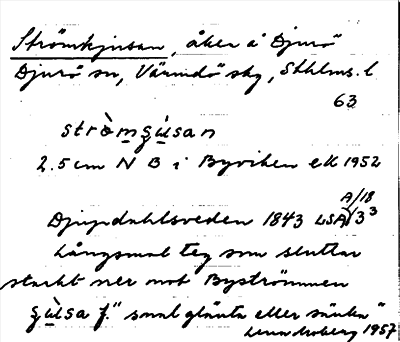 Strömkjusan, åker å Djurö
Djurö sn, Värmdö sky, Sthlms. l
63
stròmʒu̇san
2.5 cm N B i Byviken ek 1952
A/18
Djupdahlsveden 1843 LSA/3³
Långsmal teg som sluttar
starkt ner mot Byströmmen
f." smal glänta eller sänka"
1957